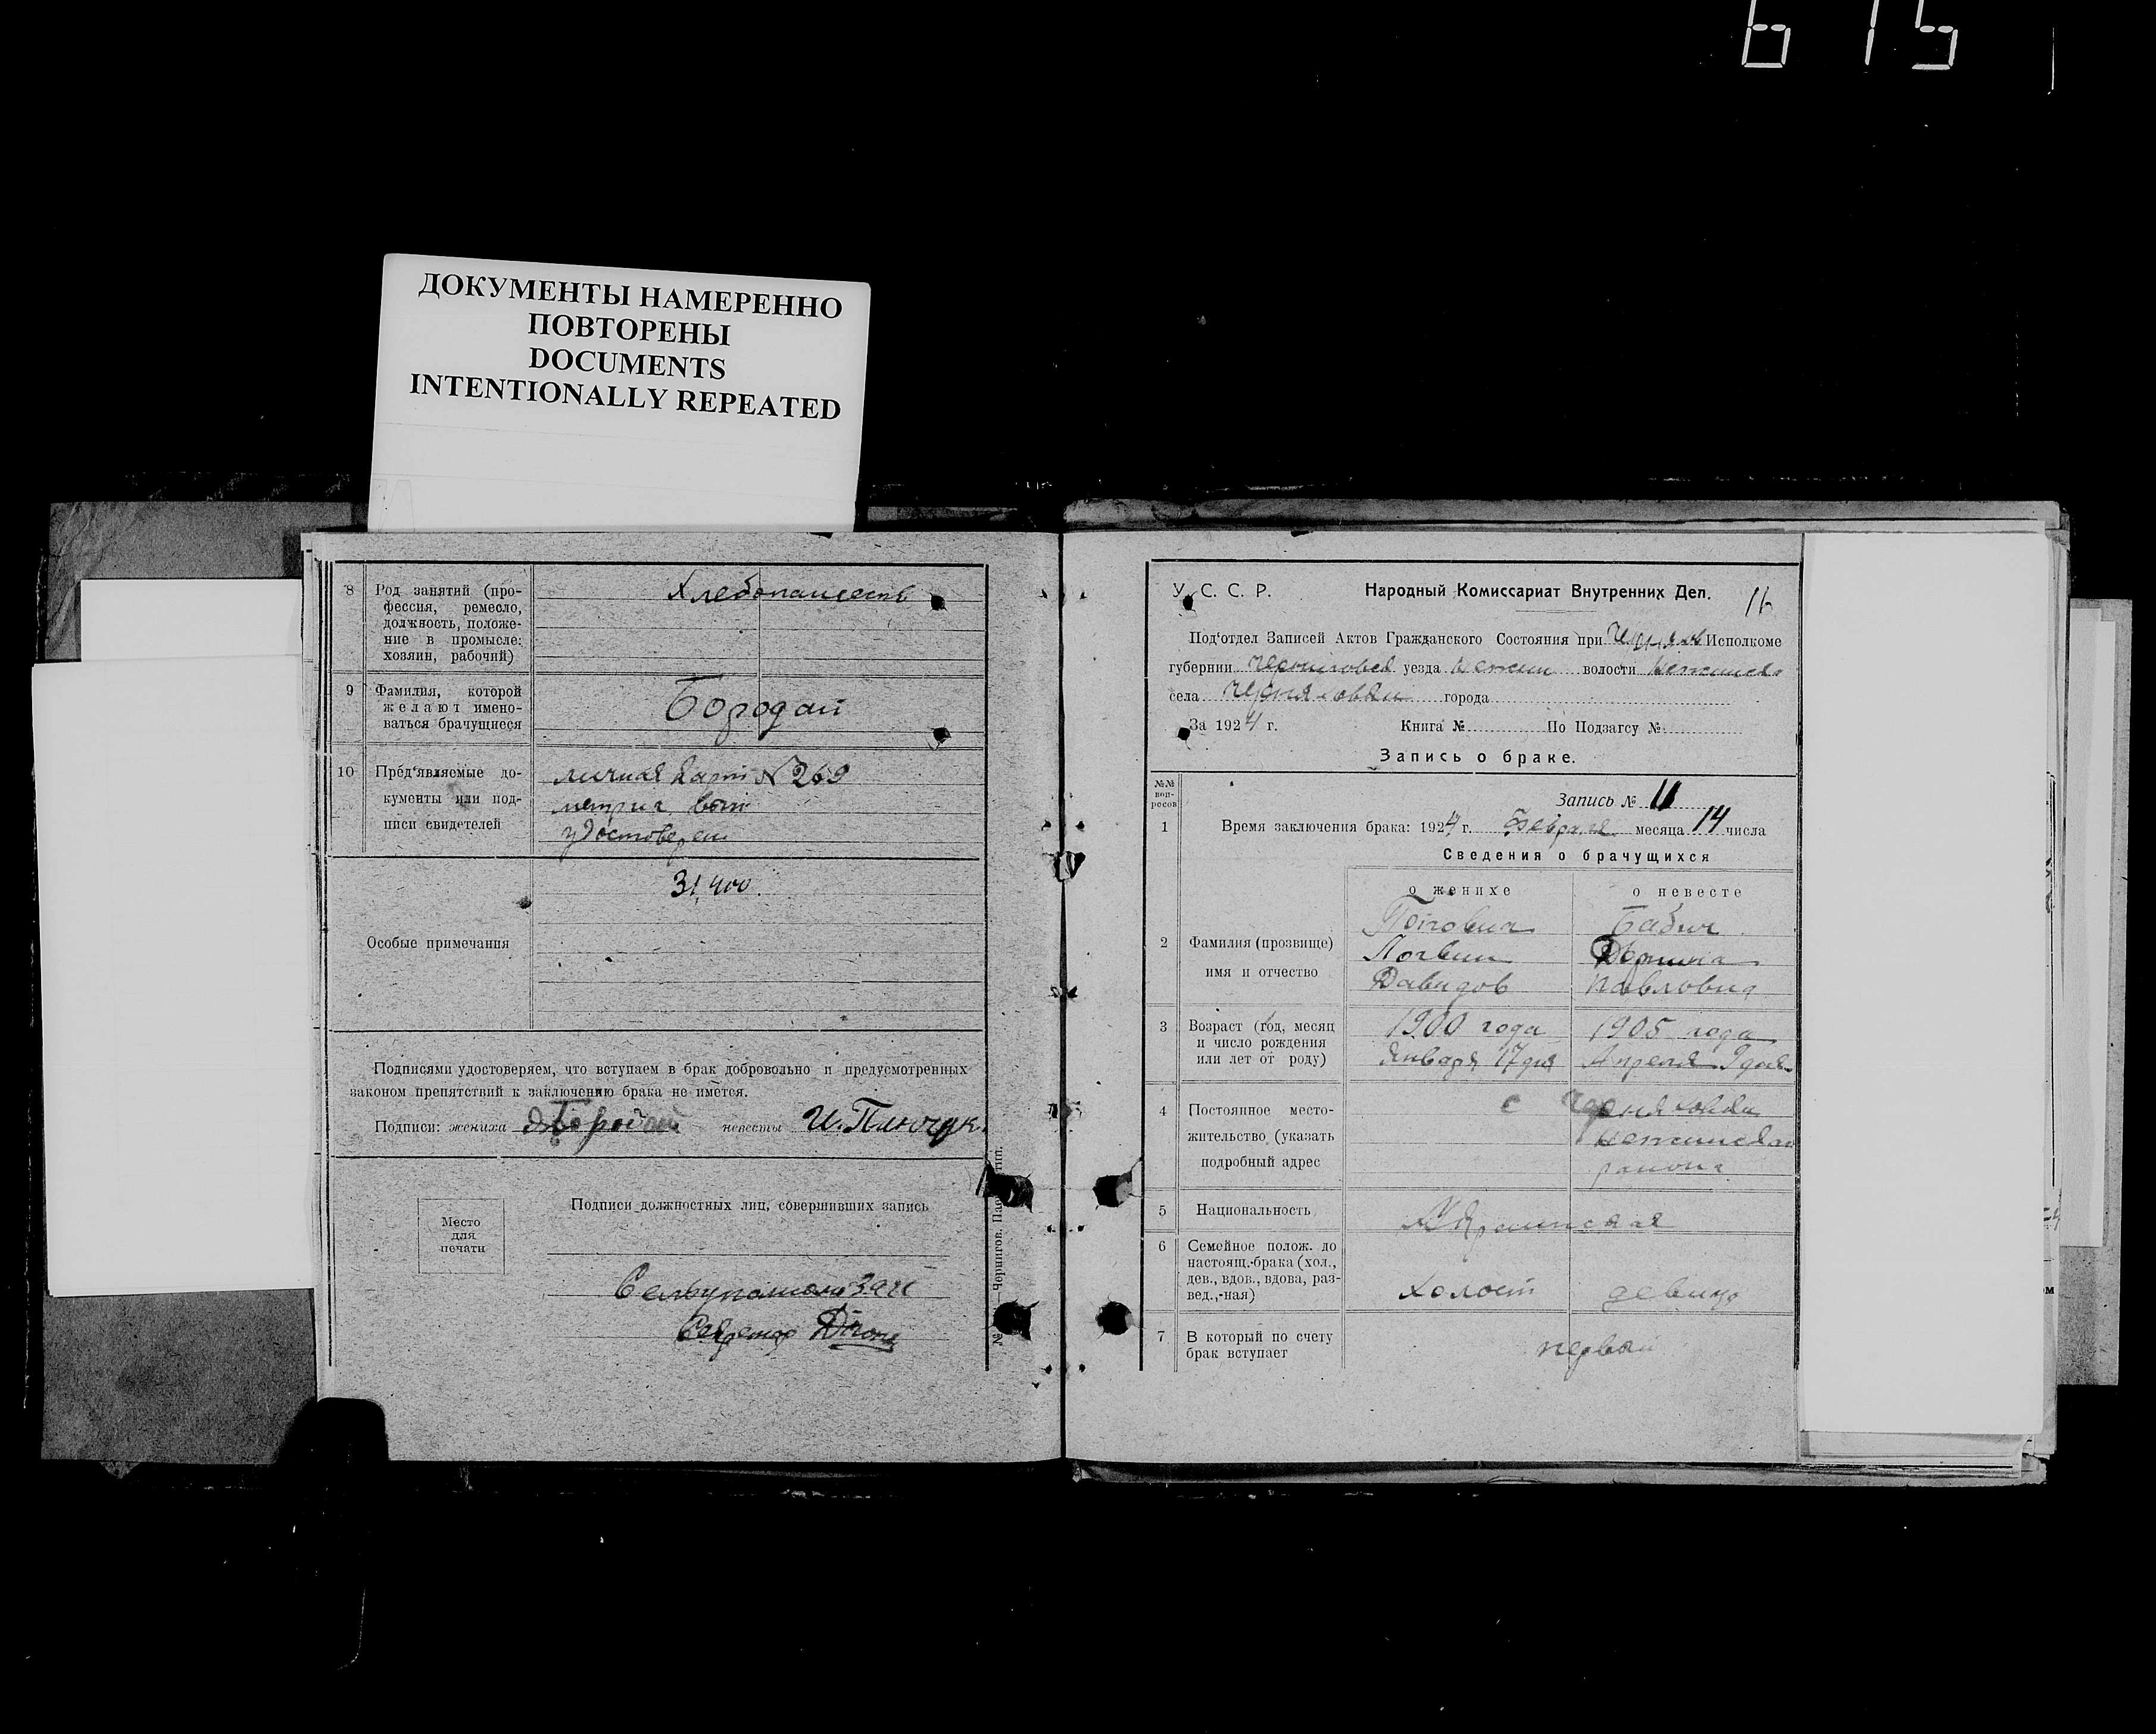 615
ДОКУМЕНТЫ НАМЕРЕННО
ПОВТОРЕНЫ
DOCUMENTS
INTENTIONALLY REPEATED
8 Род занятий (про-
фессия, ремесло,
должность, положе-
ние в промысле:
хозяин, рабочий)
Хлебопашест
9 Фамилия, которой
желают имено-
ваться брачущиеся
Бородай
10 Пред'являемые до-
кументы или под-
писи свидетелей
личная карт № 269
метрич
удостоверен
Особые примечания
31,400
Подписями удостоверяем, что вступаем в брак добровольно и предусмотренных
законом препятствий к заключению брака не имется.
Подписи: жениха Бородай невесты И. Плючук.
Место
для
печати
Подписи должностных лиц, совершивших запись
Загс
Секретар
Чернигов.
У. С. С. Р. Народный Комиссариат Внутренних Дел. 16
Под'отдел Записей Актов Гражданского Состояния при Исполкоме
губернии Черниговск уезда Нежин волости Нежинско
села Черняховки города
За 1924 г. Книга № По Подзагсу №
Запись о браке.
№№
воп-
росов
Запись № 11
1 Время заключения брака: 1924 г. Февраля месяца 14 числа
Сведения о брачущихся
о женихе о невесте
2 Фамилия (прозвище)
имя и отчество
Попович Бабич
Логвин
Давидов Павловна
3 Возраст (год, месяц
и число рождения
или лет от роду)
1900 года 1905 года
Января 17 дня Апреля 9 дня
4 Постоянное место-
жительство (указать
подробный адрес
с Черняховки
Нежинского
района
5 Национальность
Украинская
6 Семейное полож. до
настоящ. брака (хол.,
дев., вдов., вдова, раз-
вед.,-ная)
холост девица
7 В который по счету
брак вступает
первый